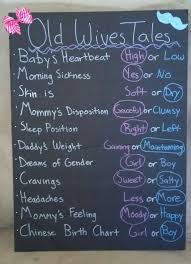 Old Wives Tales
• Baby's Heartbeat High or Low
• Morning Sickness Yes or No
• Skin is Soft or Dry
• Mommy's Disposition Graceful or Clumsy
• Sleep Position Right or Left
• Daddy's Weight Gaining or Maintaining
• Dreams of Gender Girl or Boy
• Cravings Sweet or Salty
• Headaches Less or More
• Mommy's Feeling Moody or Happy
• Chinese Birth Chart Girl or Boy